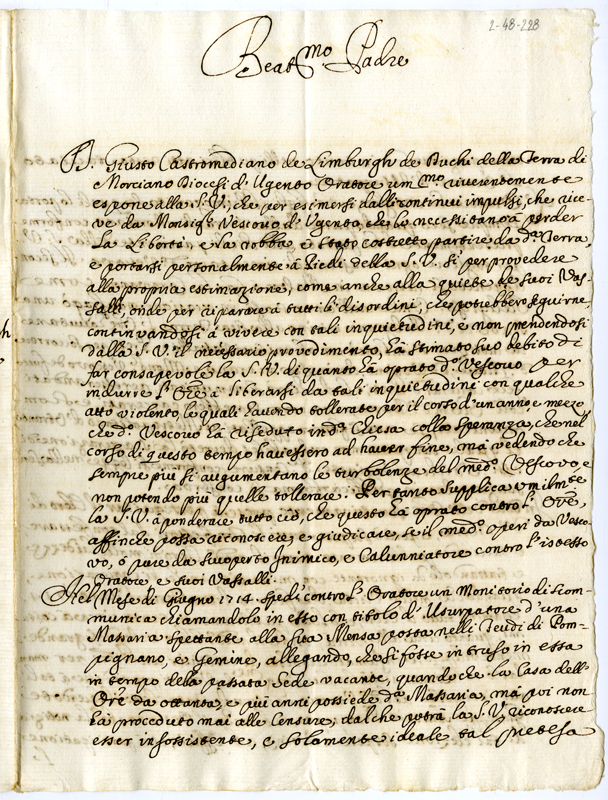 2-48-228
Beat.mo Padre
D. Giusto Castromediano de Limburgh de Duchi della Terra di
Morciano Diocesi d'Ugento Oratore um.mo riverentemente
espone alla S.V., che per esimersi dalli continui impulsi, che rice-
ve da Monsig.r Vescovo d'Ugento, che lo necessitano à perder
la libertà, e la robba, è stato costretto partire da d.a Terra,
e portarsi personalmente à Piedi della S.V. sì per provedere
alla propria estimazione, come anche alla quiete de suoi Vas-
salli, onde per riparare à tutti li disordini, che potrebbero seguirne
continuandosi à vivere con tali inquietudini, e non prendendosi
dalla S.V. il necessario provedimento, hà stimato suo debito di
far consapevole la S.V. di quanto hà oprato d.o Vescovo per
indurre l'Ore à liberarsi da tali inquietudini con qualche
atto violento, le quali havendo tollerate per il corso d'un anno, e mezzo
che d.o Vescovo hà riseduto in d.a Chiesa colla speranza, che nel
corso di questo tempo havessero ad haver fine, mà vedendo che
sempre più si augumentano le turbolenze del med.o Vescovo, e
non potendo più quelle tollerare. Per tanto supplica umilmte
la S.V. à ponderare tutto ciò, che questo hà oprato contro l'Ore,
affinche possa riconoscere, e giudicare, se il med.o operi da Vesco-
vo, ò pure da suo perto Inimico, e Calunniatore contro l'istesso
Oratore, e suoi Vassalli.
Nel Mese di Giugno 1714. spedì contro l'Oratore un Monitorio di scom-
munica chiamandolo in esso con titolo d'Usurpatore d'una
Massaria spettante alla sua Mensa posta nelli feudi di Pom-
pignano, e Gemine, allegando, che si fosse intruso in essa
in tempo della passata Sede vacante, quando che la Casa dell'
Ore da ottanta, e più anni possiede d.a Massaria, mà poi non
hà proceduto mai alle Censure; dal che potrà la S.V. riconoscere
esser insossistente, e solamente ideale tal pretesa